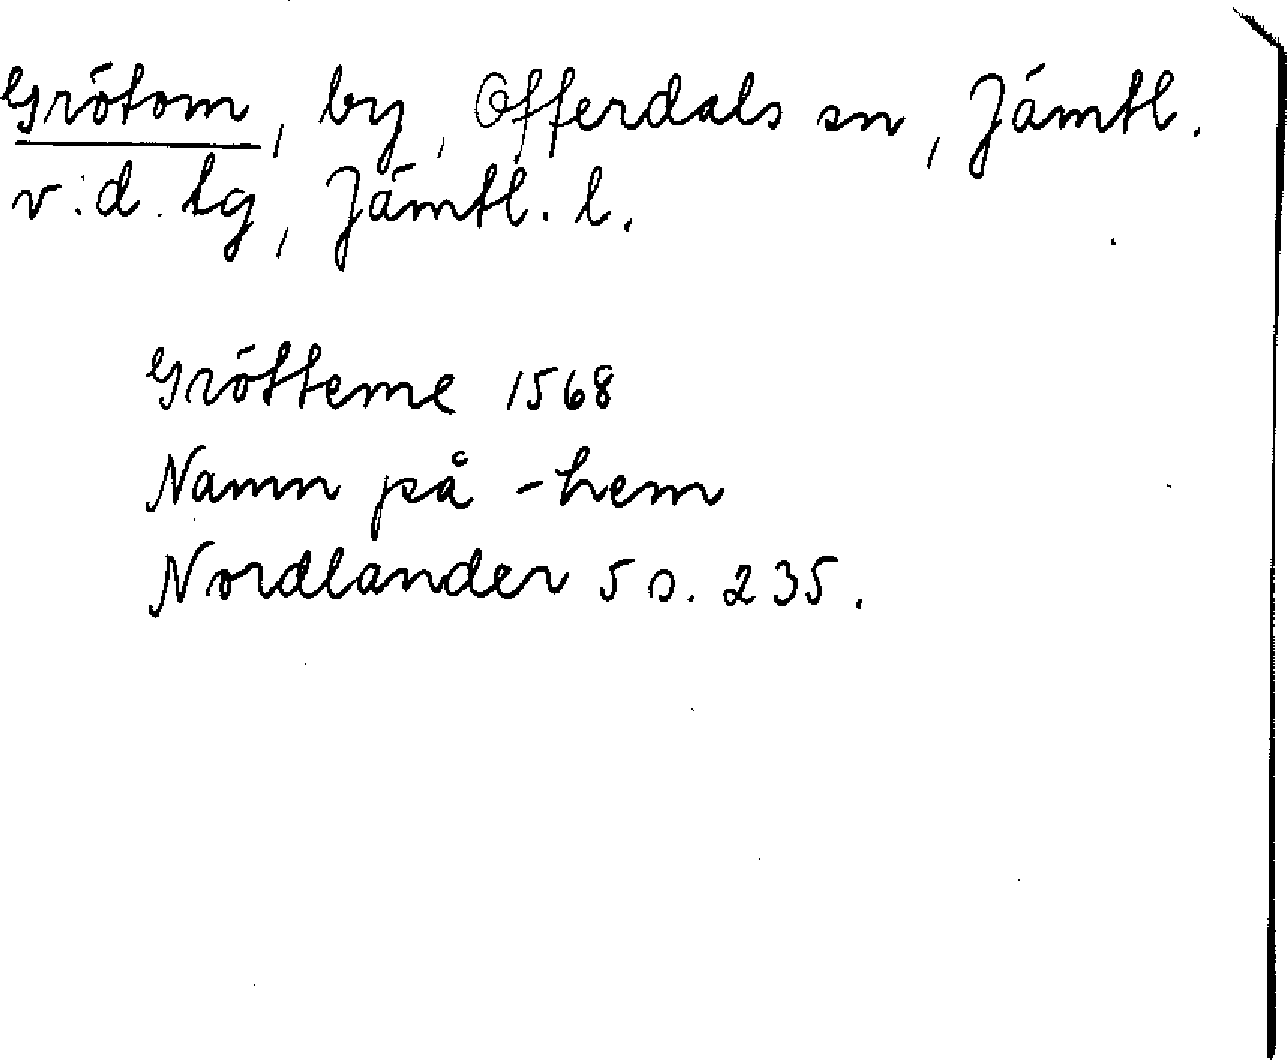 Grötom, by, Offerdals sn, Jämtl.
v. d. tg, Jämtl. l.
Grötteme 1568
Namn på -hem
Nordlander 5 s. 235.